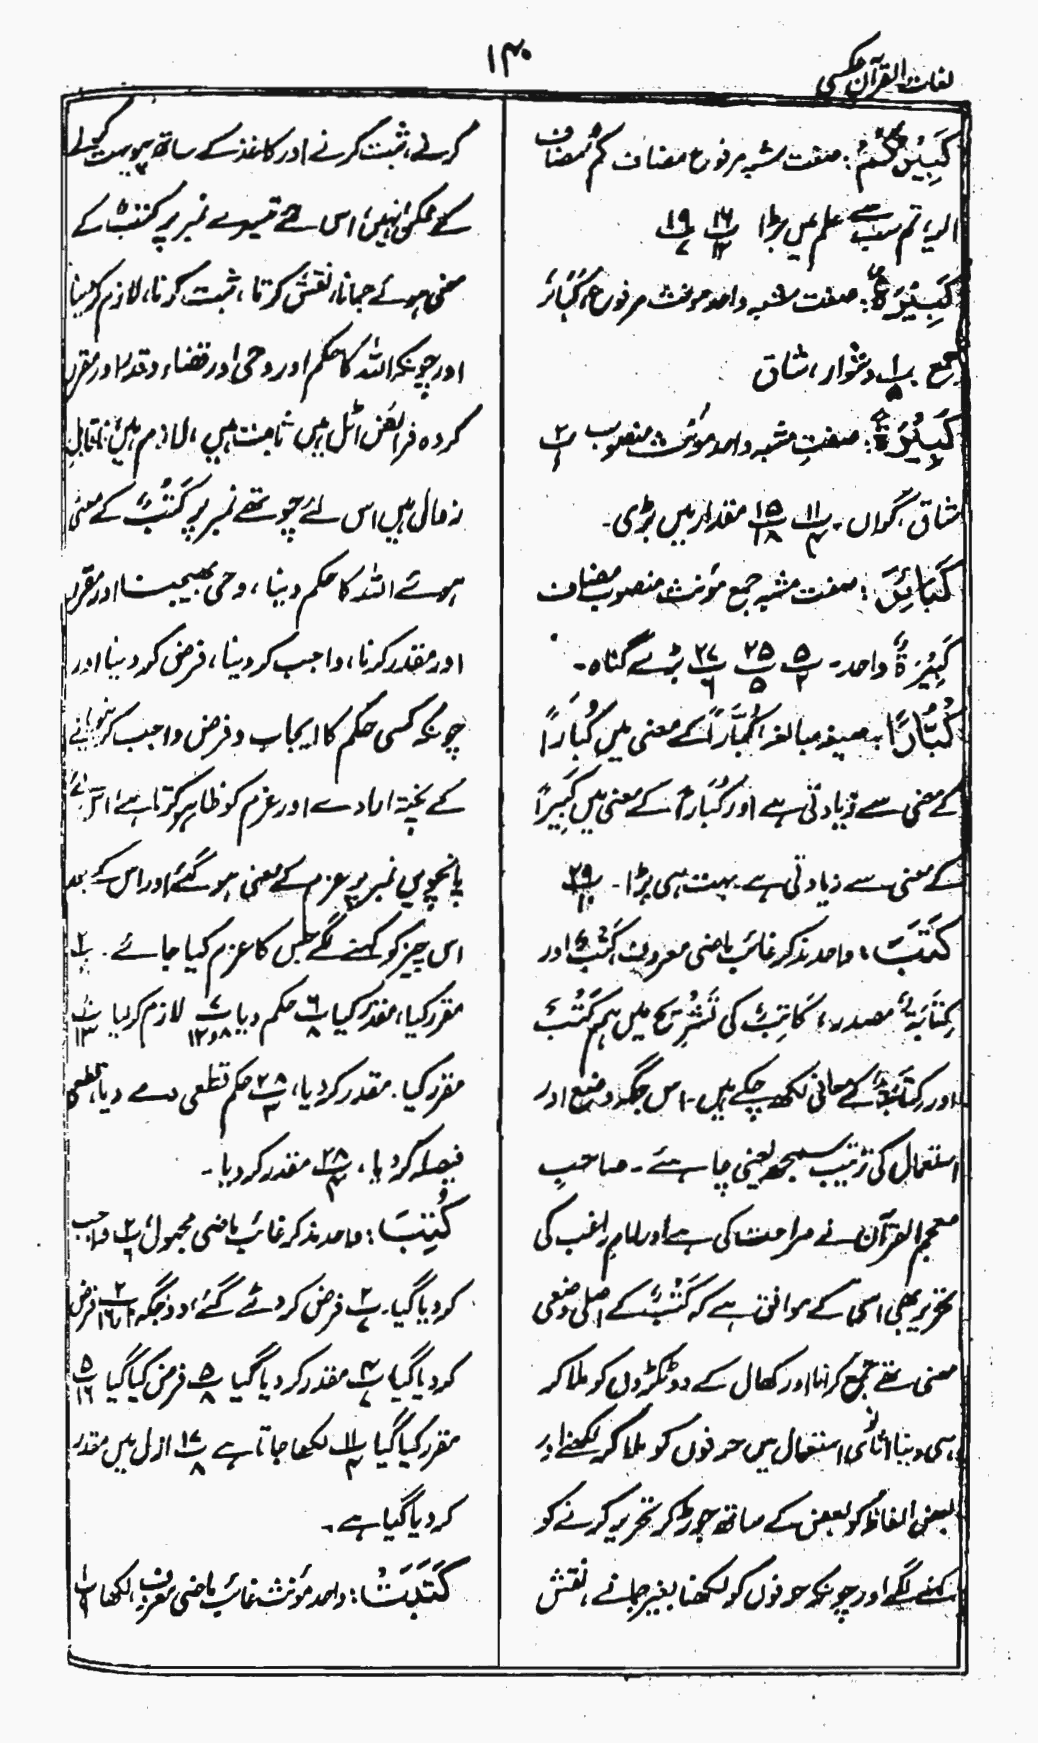 ۱۴۰
لغات القرآن عکسی
كَبِيْرُكُمْ : صفت مشبہ مرفوع مضاف كُمْ مضاف
الیہ، تم سب سے علم میں بڑا پ۱۶/۱۲ پ۱۹/۷
كَبِيْرَةٌ : صفت مشبہ واحد مونث مرفوع، كَبَائِرُ
جمع پ۱/۵ دشوار، شاق
كَبِيْرَةً : صفتِ مشبہ واحد مؤنث منصوب پ۲/۱
شاق، گراں۔ پ۱۱/۴ پ۱۵/۱۸ مقدار میں بڑی۔
كَبَائِرَ : صفت مشبہ جمع مؤنث منصوب مضاف
كَبِيْرَةٌ واحد۔ پ۵/۲ پ۲۵/۵ پ۲۷/۶ بڑے گناہ۔
كُبَّارًا : صیغہ مبالغہ، كُبَّارًا کے معنی میں كُبَارًا
کے معنی سے زیادتی ہے اور كُبَارًا کے معنی میں كَبِيرًا
کے معنی سے زیادتی ہے بہت ہی بڑا۔ پ۲۹/۱۰
كَتَبَ : واحد مذکر غائب ماضی معروف كَتْبٌ اور
كِتَابَةٌ مصدر، كَاتِبٌ کی تشریح میں ہم كَتْبٌ
اور كِتَابَةٌ کے معانی لکھ چکے ہیں۔ اس جگہ وضع اور
استعمال کی ترتیب سمجھ لینی چاہئے۔ صاحبِ
معجم القرآن نے صراحت کی ہے اور امام راغب کی
تحریر بھی اسی کے موافق ہے کہ كَتْبٌ کے اصلی وضعی
معنی تھے جمع کرنا اور کھال کے دو ٹکڑوں کو ملا کر
سی دینا ثانوی استعمال میں حرفوں کو ملا کر لکھنے اور
بعض الفاظ کو بعض کے ساتھ جوڑ کر تحریر کرنے کو
کہنے لگے اور چونکہ حرفوں کو لکھنا بغیر جمانے، نقش
کرنے، ثبت کرنے اور کاغذ کے ساتھ پیوست کرنے
کے ممکن نہیں، اس لئے تیسرے نمبر پر كَتْبٌ کے
معنی ہوئے جمانا، نقش کرنا، ثبت کرنا، لازم کر دینا
اور چونکہ اللہ کا حکم اور وحی اور قضاء و قدر اور مقرر
کردہ فرائض اٹل ہیں ثابت ہیں، لازم ہیں، ناقابلِ
زوال ہیں اس لئے چوتھے نمبر پر كَتْبٌ کے معنی
ہوئے اللہ کا حکم دینا، وحی بھیجنا اور مقرر
اور مقدر کرنا، واجب کر دینا، فرض کر دینا اور
چونکہ کسی حکم کا ایجاب و فرض واجب کرنیوالے
کے پختہ ارادے اور عزم کو ظاہر کرتا ہے، اس لئے
پانچویں نمبر پر عزم کے معنی ہو گئے اور اس کے بعد
اس چیز کو کہنے لگے جس کا عزم کیا جائے۔
مقرر کیا، مقدر کیا پ۶/۸ حکم دیا پ۷/۸و۱۲ لازم کر لیا
مقرر کیا۔ مقدر کر دیا، پ۲۸/۳ حکم قطعی دے دیا، قطعی
فیصلہ کر دیا، پ۲۸/۴ مقدر کر دیا۔
كُتِبَ : واحد مذکر غائب ماضی مجہول پ۲/۶ واجب
کر دیا گیا۔ پ۲/۷ فرض کر دئے گئے، دو جگہ پ۲/۱۶ فرض
کر دیا گیا، پ۴/۷ مقدر کر دیا گیا پ۵/۸ فرض کیا گیا پ۵/۱۶
مقرر کیا گیا پ۱۱/۴ لکھا جاتا ہے پ۱۷/۸ ازل میں مقدر
کر دیا گیا ہے۔
كَتَبَتْ : واحد مؤنث غائب ماضی معروف، لکھا پ۱/۹